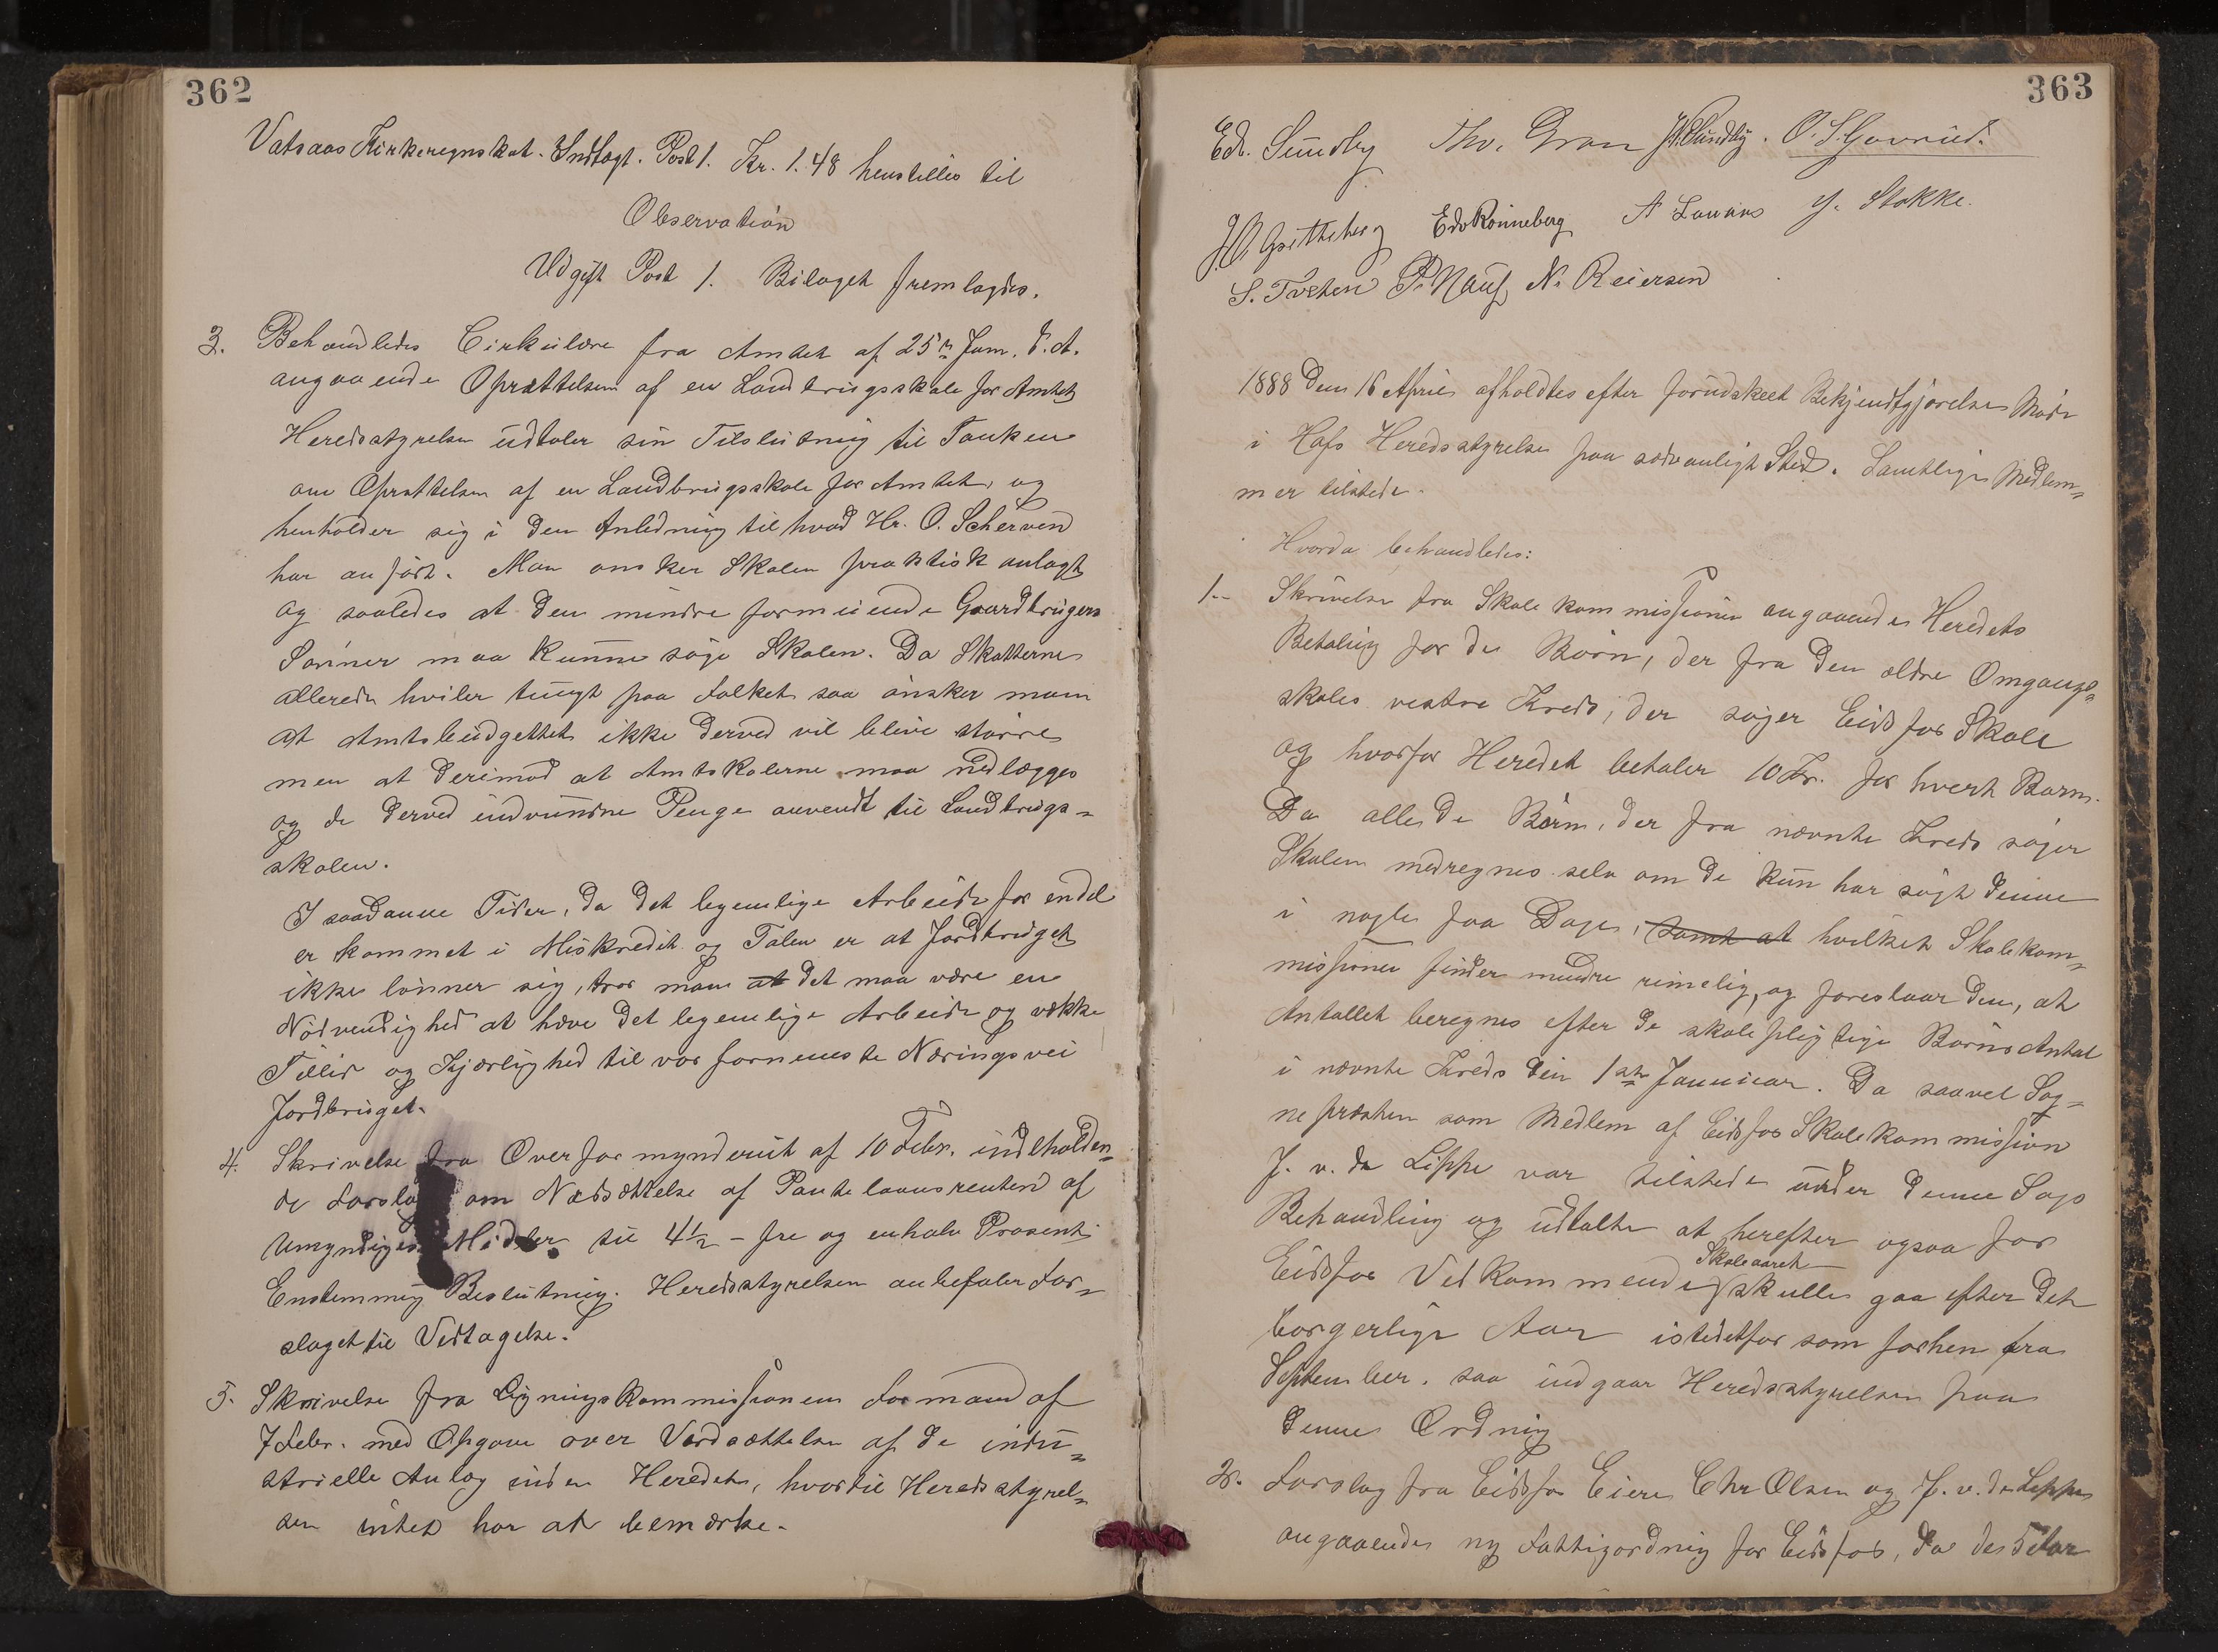 362
Vatsaas Kirkeregnskab. Indtægt. Post 1. Kr. 1.48 henstilles til
Observation
Udgift Post 1. Bilaget fremlagdes.
3. Behandledes Cirkulære fra Amtet af 25de Jan. d. A.
angaaende Oprettelsen af en Landbrugsskole for Amtet
Heredsstyrelsen udtaler sin Tilslutning til Tanken
om Oprettelsen af en Landbrugsskole for Amtet, og
henholder sig i den Anledning til hvad Hr. O. Scherven
har anført. Man ønsker Skolen praktisk anlagt
og saaledes at den mindre formuende Gaardbrugers
Sønner maa kunne søge Skolen. Da Skatterne
allerede hviler tungt paa Folket saa ønsker man
at Amtsbudgettet ikke derved vil blive større
men at derimod at Amtskolerne maa nedlægges
og de derved indvundne Penge anvendt til Landbrugs-
skolen.
I saadanne Tider, da det legemlige Arbeide for endel
er kommet i Miskredit og Talen er at Jordbruget
ikke lønner sig, tror man at det maa være en
Nødvendighed at hæve det legemlige Arbeide og vække
Tillid og Kjærlighed til vor fornemste Næringsvei
Jordbruget.
4. Skrivelse fra Overformynderiet af 10 Febr. indeholden-
de Forslag om Nedsættelse af Pantelaansrenten af
Umyndiges Midler til 4½ - fire og enhalv Prosent.
Enstemmig Beslutning. Heredsstyrelsen anbefaler For-
slaget til Vedtagelse.
5. Skrivelse fra Ligningskommissionens Formand af
7 Febr. med Opgave over Verdsættelsen af de indu-
strielle Anlæg inden Heredet, hvortil Heredsstyrel-
sen intet har at bemærke.
363
Edv. Sundby Thv. Gran H. Sundby. O. S. Gavrud.
J. O. Grette Edv Rønneberg A Lauans J. Stokke.
S. Tveten P. Nauf N. Reiersen
1888 den 16 April afholdtes efter forudskeet Bekjendtgjørelse Møde
i Hofs Heredsstyrelse paa sædvanligt Sted. Samtlige Medlem-
mer tilstede.
Hvorda behandledes:
1. Skrivelse fra Skolekommissionen angaaende Heredets
Betaling for de Børn, der fra den ældre Omgangs-
skoles vestre Kreds, der søger Eidsfos Skole
og hvorfor Heredet betaler 10 Kr. for hvert Barn.
Da alle de Børn, der fra nævnte Kreds søger
Skolen medregnes selv om de kun har søgt denne
i nogle faa Dage, samt at hvilket Skolekom-
missionen finder mindre rimelig, og foreslaar den, at
Antallet beregnes efter de skolepligtige Børns Antal
i nævnte Kreds den 1ste Januar. Da saavel Sog-
nepresten som Medlem af Eidsfos Skolekommission
J. v. da Lippe var tilstede under denne Sags
Behandling og udtalte at herefter ogsaa for
Eidsfos Vedkommende Skoleaaret skulle gaa efter det
borgerlige Aar istedetfor som forhen fra
September, saa indgaar Heredsstyrelsen paa
denne Ordning
2. Forslag fra Eidsfos Eiere Chr Olsen og J. v. da Lippe
angaaende ny Fattigordning for Eidsfos, da des 5 Aar